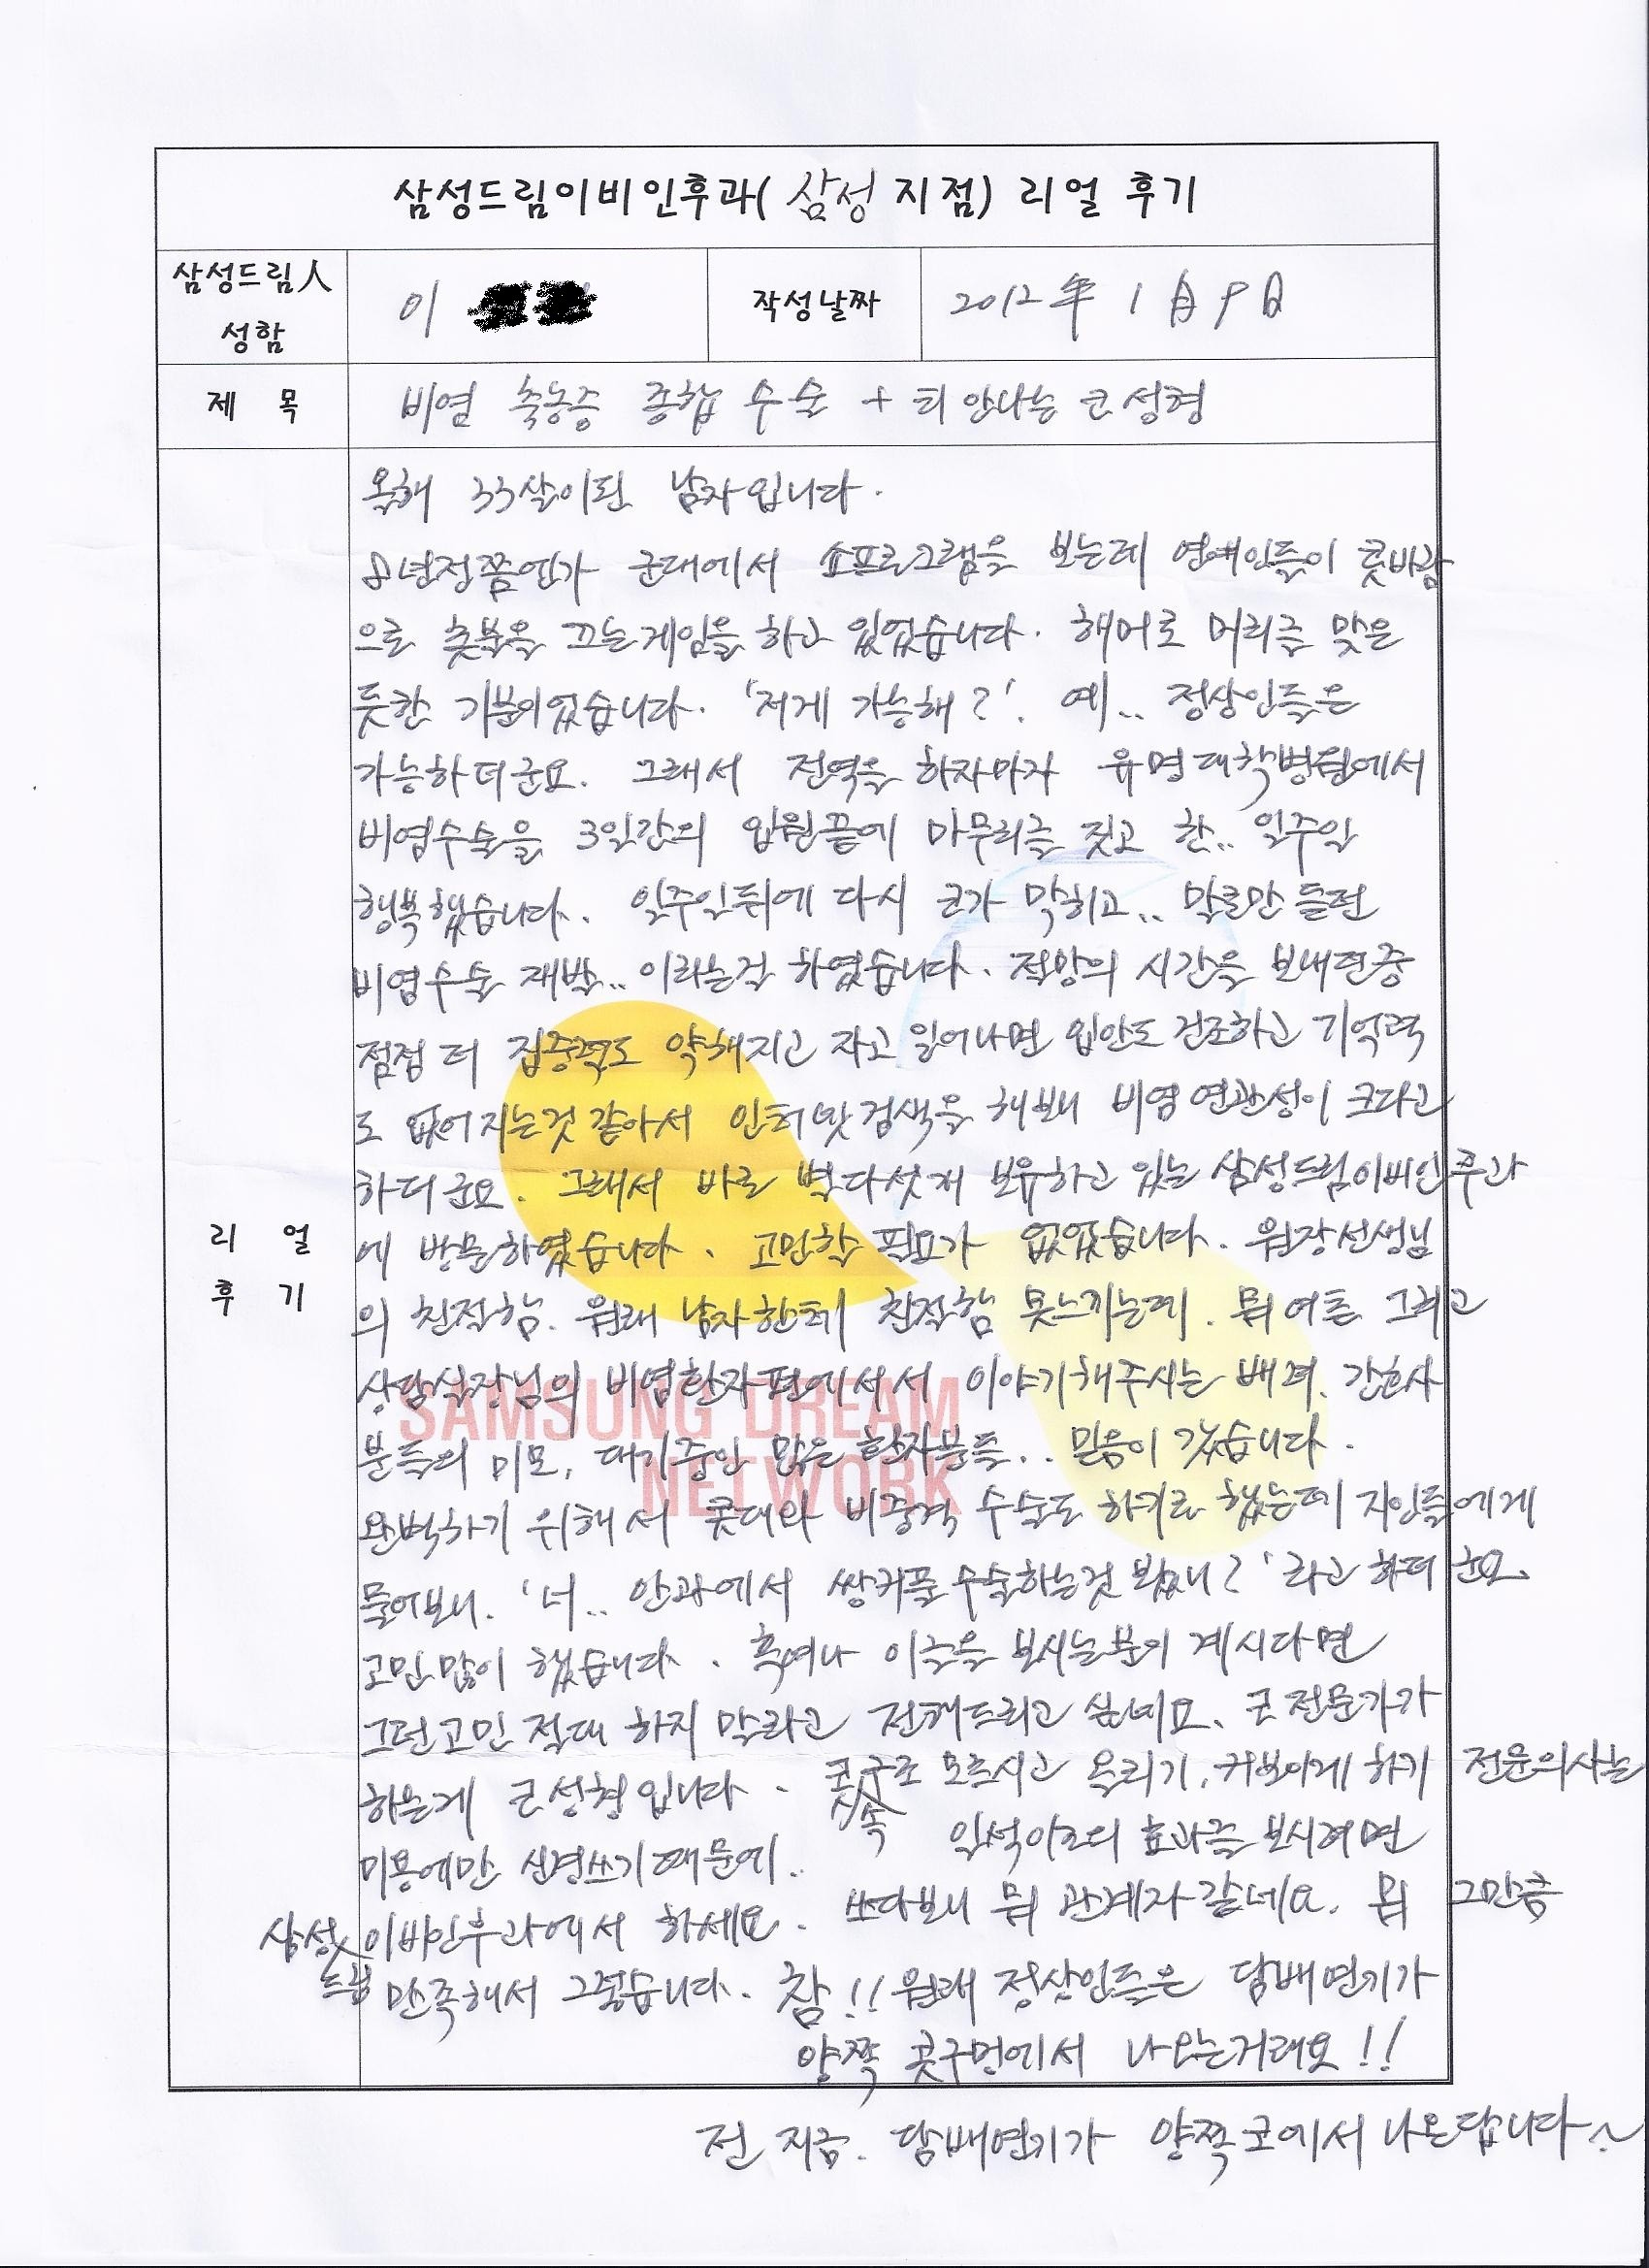 삼성드림이비인후과( 삼성 지점) 리얼 후기
삼성드림人
성함
이
작성날짜
2012年 1月 9日
제 목
비염 축농증 종합 수술 + 티 안나는 코성형
리 얼
후 기
올해 33살이된 남자입니다.
8년전쯤인가 군대에서 쇼프로그램을 보는데 연예인들이 콧바람
으로 촛불을 끄는게임을 하고 있었습니다. 해머로 머리를 맞은
듯한 기분이었습니다. '저게 가능해?'. 예.. 정상인들은
가능하더군요. 그래서 전역을 하자마자 유명대학병원에서
비염수술을 3일간의 입원끝에 마무리를 짓고 한.. 일주일
행복했습니다. 일주일뒤에 다시 코가 막히고.. 말로만 듣던
비염수술 재발.. 이라는걸 하였습니다. 절망의 시간을 보내던중
점점 더 집중력도 약해지고 자고 일어나면 입안도 건조하고 기억력
도 없어지는것 같아서 인터넷 검색을 해보니 비염 연관성이 크다고
하더군요. 그래서 바로 별다섯개 보유하고 있는 삼성드림이비인후과
에 방문하였습니다. 고민할 필요가 없었습니다. 원장선생님
의 친절함. 원래 남자한테 친절함 못느끼는데. 뭐 여튼 그리고
상담실장님의 비염환자편에서서 이야기해주시는 배려. 간호사
분들의 미모, 대기중인 많은 환자분들.. 믿음이 갔습니다.
완벽하기 위해서 콧대와 비중격 수술도 하기로 했는데 지인들에게
물어보니. '너.. 안과에서 쌍커풀수술하는것 봤니?'라고 하더군요.
고민많이 했습니다. 혹여나 이글을 보시는분이 계시다면
그런고민 절대 하지 말라고 전해드리고 싶네요. 코 전문가가
하는게 코성형입니다. 콧구조 모르시고 올리기, 커보이게 하기 전문의사는
미용에만 신경쓰기때문에.. 일석이조의 효과를 보시려면
삼성드림이비인후과에서 하세요. 쓰다보니 뭐 관계자 같네요. 뭐 그만큼
만족해서 그렇습니다. 참!! 원래 정상인들은 담배연기가
양쪽 콧구멍에서 나오는거래요!!
전 지금. 담배연기가 양쪽코에서 나온답니다~
SAMSUNG DREAM
NETWORK